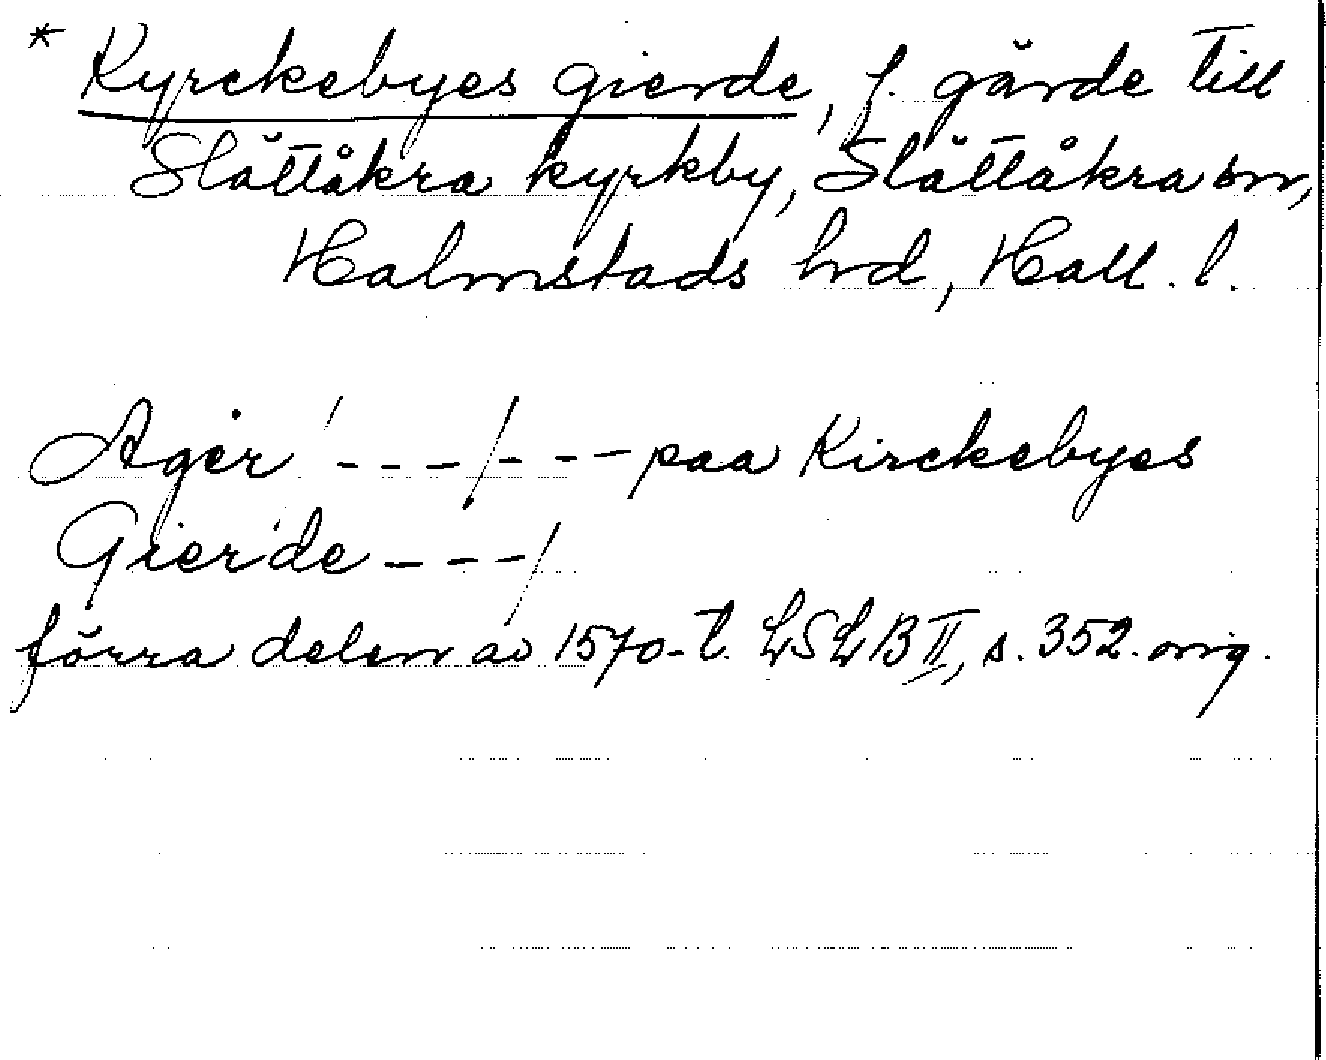 * Kyrckebyes gierde, f. gärde till
Slättåkra kyrkby, Slättåkra sn,
Halmstads hrd, Hall. l.
Ager / - - - / - - - paa Kirckebyes
Gierde - - - /
förra delen av 1570-t. LSLB II, s. 352. orig.